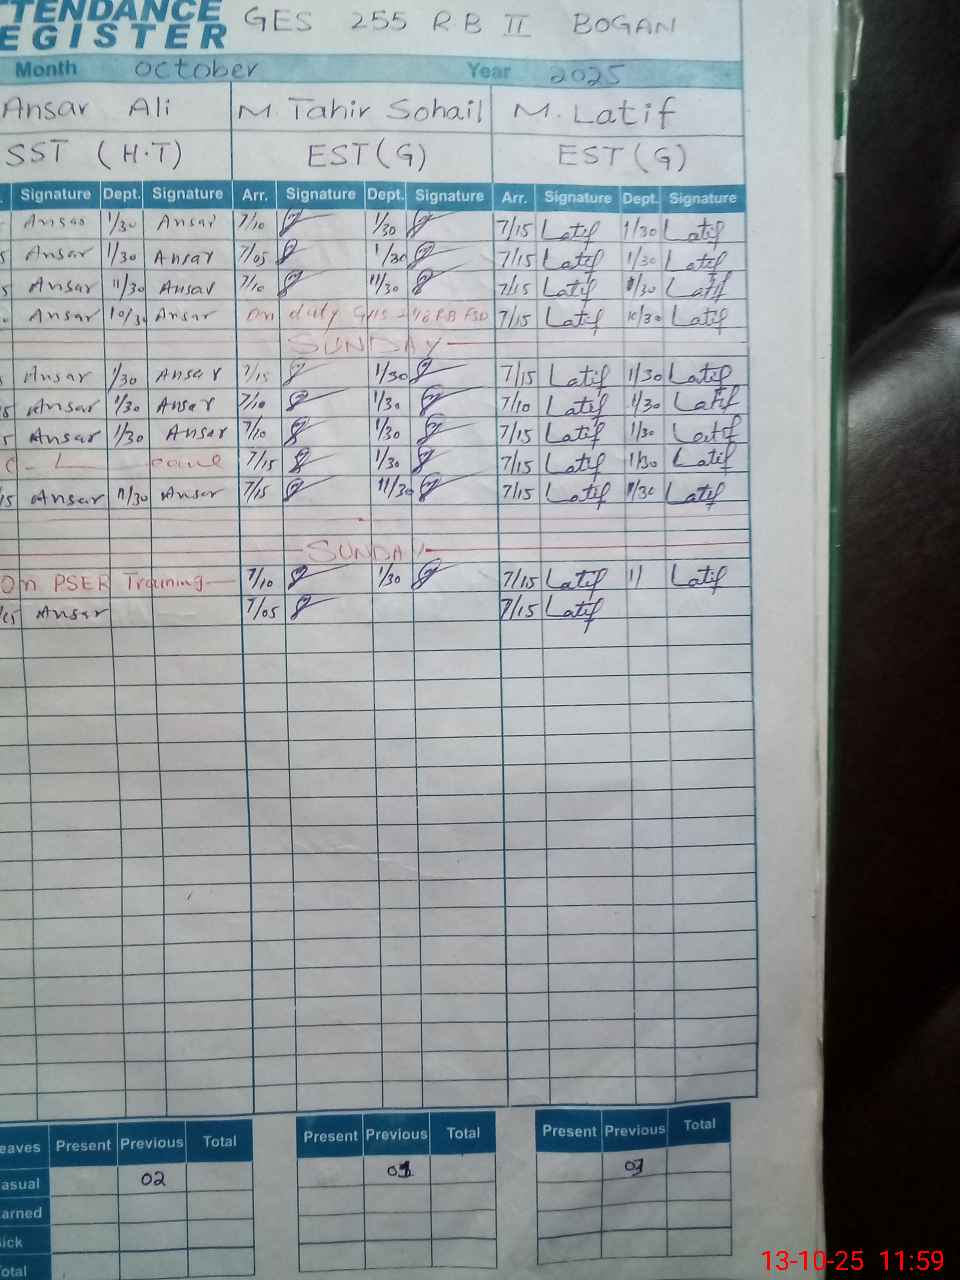 TTENDANCE
EGISTER GES 255 R B II BOGAN
Month October Year 2025
Ansar Ali M. Tahir Sohail M. Latif
SST (H.T) EST (G) EST (G)
Signature Dept. Signature Arr. Signature Dept. Signature Arr. Signature Dept. Signature
Ansar 1/30 Ansar 7/10 1/30 7/15 Latif 1/30 Latif
Ansar 1/30 Ansar 7/05 1/30 7/15 Latif 1/30 Latif
Ansar 11/30 Ansar 7/10 11/30 7/15 Latif 11/30 Latif
Ansar 10/30 Ansar On duty 7/15 Latif 10/30 Latif
SUNDAY
Ansar 1/30 Ansar 7/15 1/30 7/15 Latif 1/30 Latif
Ansar 1/30 Ansar 7/10 1/30 7/10 Latif 1/30 Latif
Ansar 1/30 Ansar 7/10 1/30 7/15 Latif 1/30 Latif
C - Leave 7/15 1/30 7/15 Latif 1/30 Latif
15 Ansar 11/30 Ansar 7/15 11/30 7/15 Latif 11/30 Latif
SUNDAY
On PSER Training 7/10 1/30 7/15 Latif 1/ Latif
Ansar 7/05 7/15 Latif
eaves Present Previous Total Present Previous Total Present Previous Total
asual 02
arned
ick
otal
13-10-25 11:59